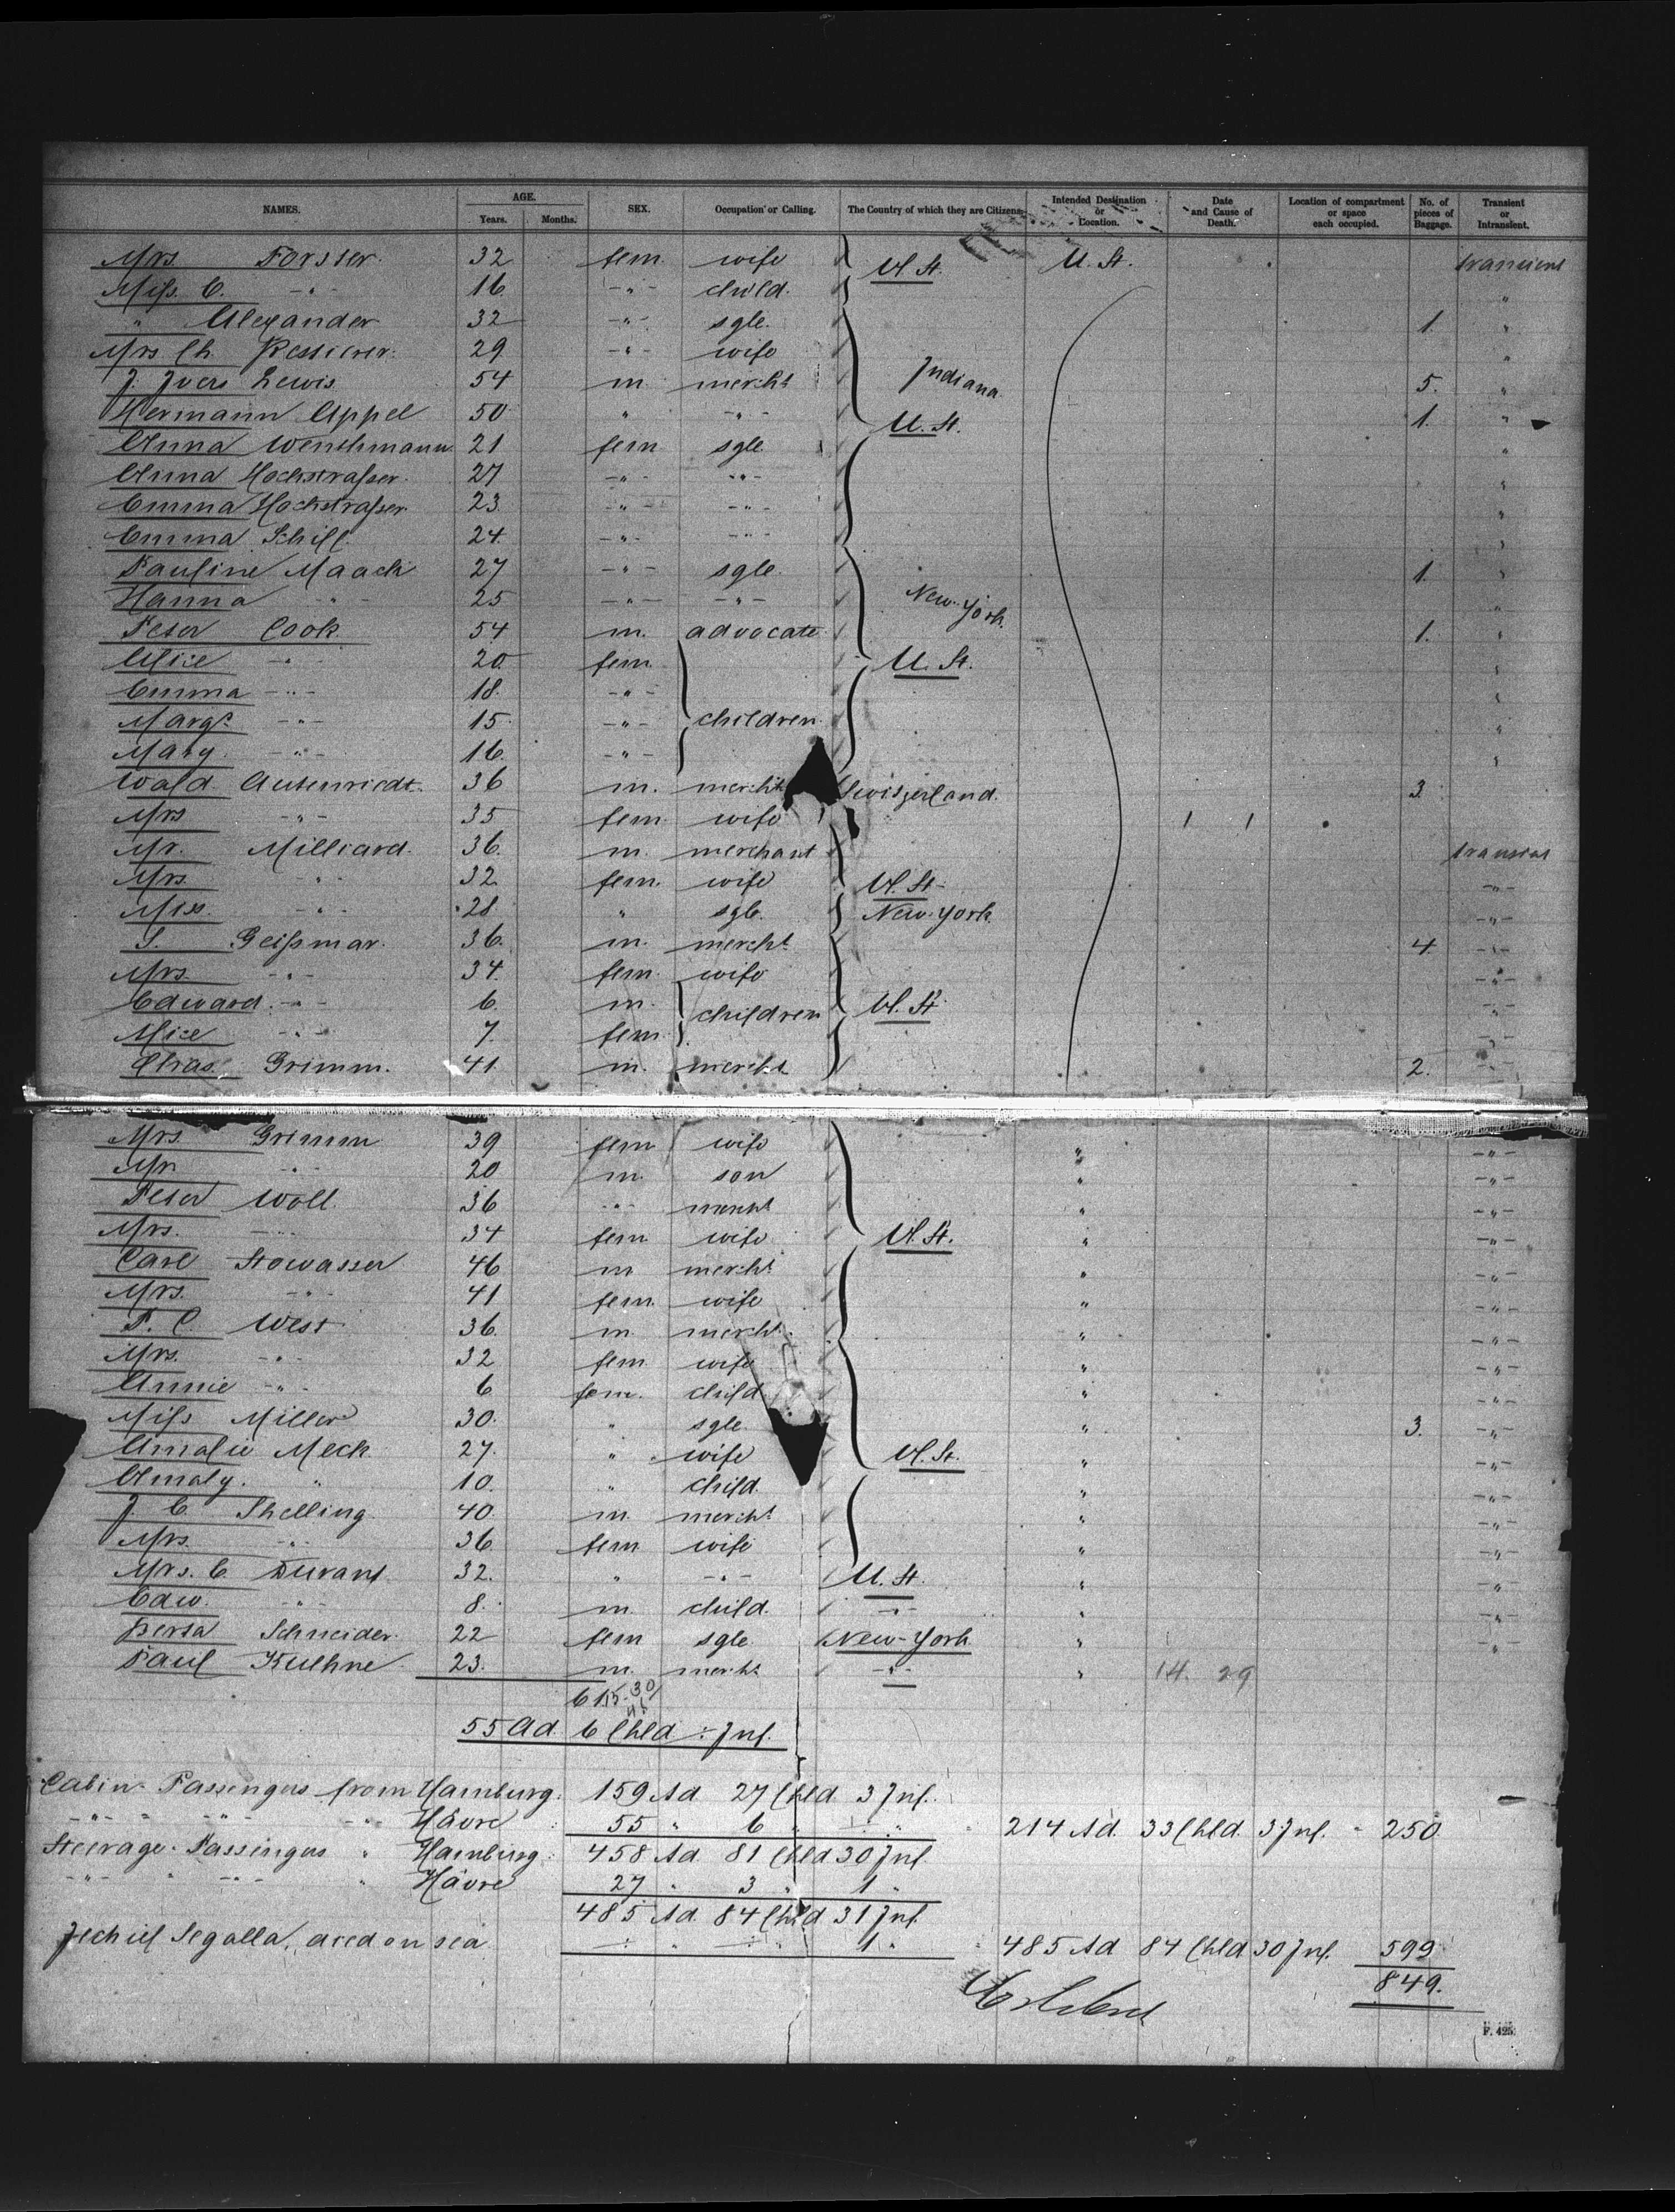 NAMES. AGE. Years. Months. SEX. Occupation or Calling. The Country of which they are Citizens. Intended Destination or Location. Date and Cause of Death. Location of compartment or space each occupied. No. of pieces of Baggage. Transient or Intransient.
Mrs. Forster. 32 fem wife U. St. U. St. transient
Miſs. C. -"- 16 -"- child. "
" Alexander 32 -"- sgle. 1. "
Mrs Ch. 29 -"- wife "
J. Jvers Lewis 54 m merch't Indiana 5. "
Hermann Appel 50 " -"- U. St. 1. "
Anna Wenthmann 21 fem sgle. "
Anna Hochstraſser. 27 -"- -"- "
Emma Hochstraſser 23. -"- -"- "
Emma Schill 24. -"- -"- "
Pauline Maack 27 -"- sgle. 1. "
Hanna -"- 25 -"- -"- New-York. "
Peter Cook. 54 m. advocate 1. "
Alice -"- 20. fem. U. St. "
Emma -"- 18. -"- "
Marg't -"- 15. -"- children. "
Mary. -"- 16. -"- "
Wald. Autenriedt. 36 m. merch't Switzerland. 3.
Mrs -"- 35 fem. wife 1 1
Mr. Milliard. 36. m. merchant transient
Mrs. -"- 32 fem. wife U. St. -"-
Miss. -"- 28 " sgle. New-York. -"-
S. Geiſsmar. 36. m. mercht. 4. -"-
Mrs. -"- 34. fem. wife -"-
Edward. -"- 6. m. children U. St. -"-
Alice -"- 7. fem. -"-
Chas. Grimm. 41 m. mercht 2. -"-
Mrs. Grimm 39 fem wife " -"-
Mr. -"- 20 m. son " -"-
Peter Woll. 36 -"- mercht " -"-
Mrs. -"- 34 fem wife U. St. " -"-
Carl Stowasser 46 m mercht. " -"-
Mrs. -"- 41 fem. wife " -"-
P. C. West 36. m. mercht. " -"-
Mrs. -"- 32 fem wife " -"-
Annie -"- 6 fem. child " -"-
Miſs Miller 30. " sgle. " 3. -"-
Amalie Meck 27. " wife U. St. " -"-
Amaly. " 10. " child. " -"-
J. C. Shelling. 40. m. mercht " -"-
Mrs. -"- 36. fem wife " -"-
Mrs. C. Durant 32. " -"- U. St. " -"-
Edw. -"- 8. m. child. -"- " -"-
Berta Schneider. 22 fem sgle New-York " -"-
Paul Kuehne 23. m. mercht -"- " 14. 29
55 Ad. 6 Chld ÷ Jnf.
Cabin Passengers from Hamburg: 159 Ad 27 Chld 3 Jnf.
-"- -"- -"- Hâvre : 55 " 6 " ÷ " 214 Ad. 33 Chld. 3 Jnf. - 250
Steerage-Passengers " Hamburg: 458 Ad 81 Chld 30 Jnf.
-"- " -"- " Hâvre 27 " 3 " 1 "
485 Ad. 84 Chld 31 Jnf.
Jechiel Segalla, died on sea ÷ " ÷ " 1 " 485 Ad 84 Chld 30 Jnf. 599
849.
F. 425.